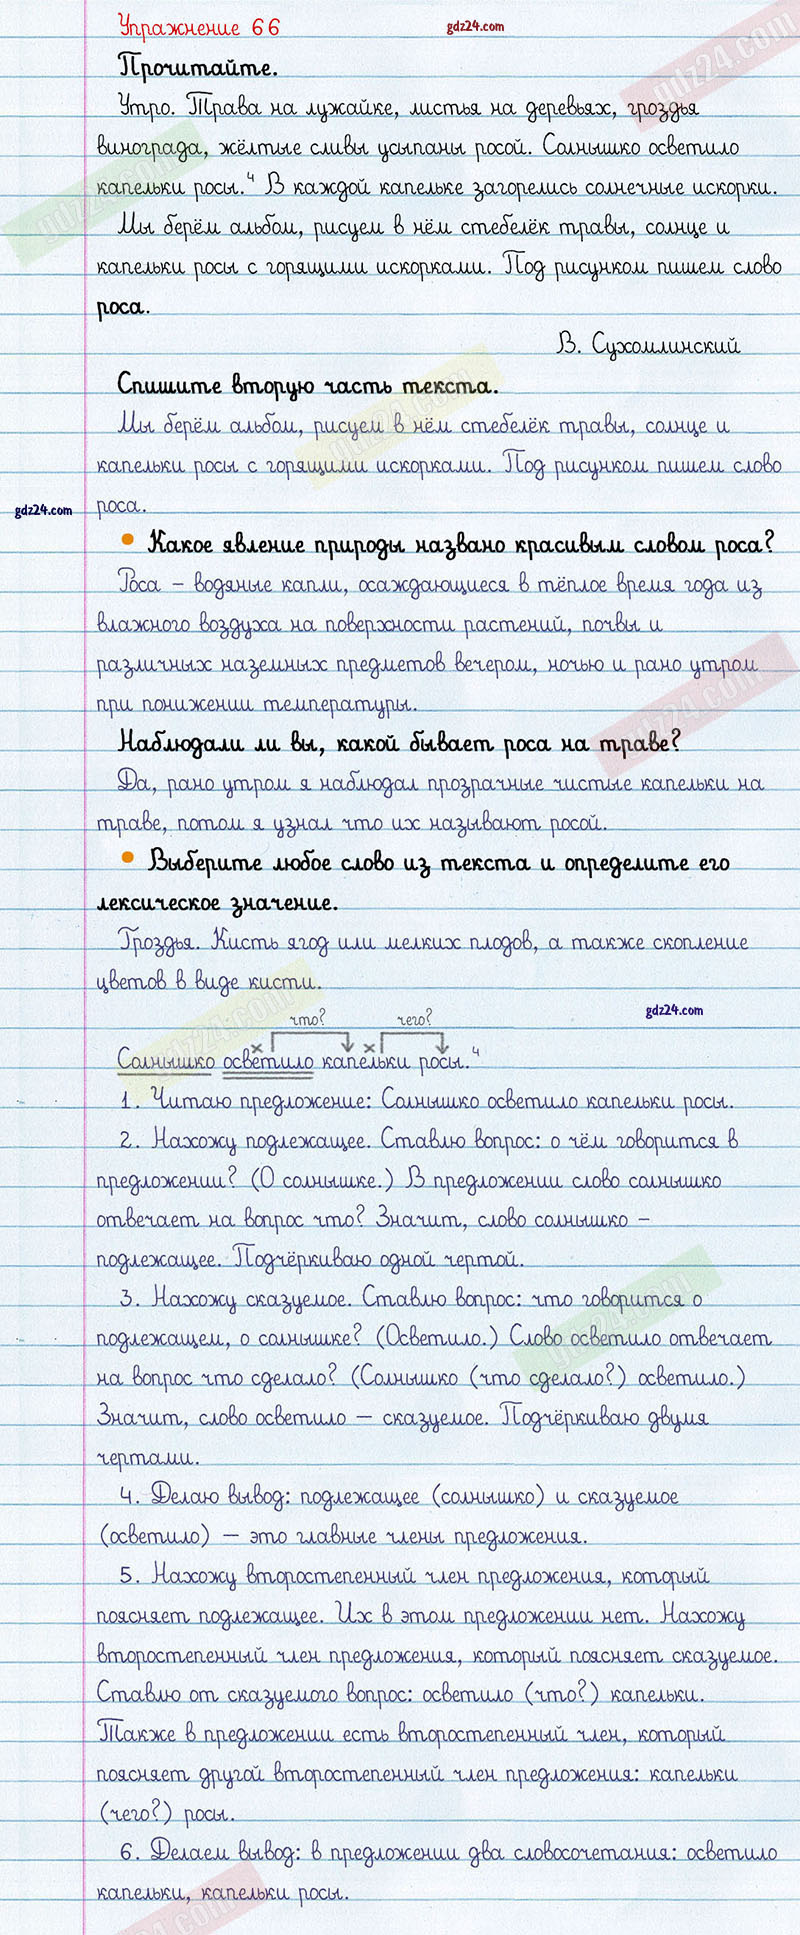 Упражнение 66
gdz24.com
Прочитайте.
Утро. Трава на лужайке, листья на деревьях, гроздья
винограда, жёлтые сливы усыпаны росой. Солнышко осветило
капельки росы.⁴ В каждой капельке загорелись солнечные искорки.
Мы берём альбом, рисуем в нём стебелёк травы, солнце и
капельки росы с горящими искорками. Под рисунком пишем слово
роса.
В. Сухомлинский
Спишите вторую часть текста.
Мы берём альбом, рисуем в нём стебелёк травы, солнце и
капельки росы с горящими искорками. Под рисунком пишем слово
роса.
gdz24.com
• Какое явление природы названо красивым словом роса?
Роса – водяные капли, осаждающиеся в тёплое время года из
влажного воздуха на поверхности растений, почвы и
различных наземных предметов вечером, ночью и рано утром
при понижении температуры.
Наблюдали ли вы, какой бывает роса на траве?
Да, рано утром я наблюдал прозрачные чистые капельки на
траве, потом я узнал что их называют росой.
• Выберите любое слово из текста и определите его
лексическое значение.
Гроздья. Кисть ягод или мелких плодов, а также скопление
цветов в виде кисти.
gdz24.com
что? чего?
Солнышко осветило капельки росы.⁴
1. Читаю предложение: Солнышко осветило капельки росы.
2. Нахожу подлежащее. Ставлю вопрос: о чём говорится в
предложении? (О солнышке.) В предложении слово солнышко
отвечает на вопрос что? Значит, слово солнышко –
подлежащее. Подчёркиваю одной чертой.
3. Нахожу сказуемое. Ставлю вопрос: что говорится о
подлежащем, о солнышке? (Осветило.) Слово осветило отвечает
на вопрос что сделало? (Солнышко (что сделало?) осветило.)
Значит, слово осветило – сказуемое. Подчёркиваю двумя
чертами.
4. Делаю вывод: подлежащее (солнышко) и сказуемое
(осветило) – это главные члены предложения.
5. Нахожу второстепенный член предложения, который
поясняет подлежащее. Их в этом предложении нет. Нахожу
второстепенный член предложения, который поясняет сказуемое.
Ставлю от сказуемого вопрос: осветило (что?) капельки.
Также в предложении есть второстепенный член, который
поясняет другой второстепенный член предложения: капельки
(чего?) росы.
6. Делаем вывод: в предложении два словосочетания: осветило
капельки, капельки росы.